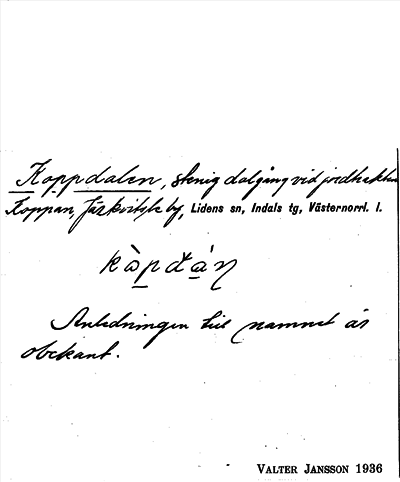 Koppdalen, stenig dalgång vid jordbacken
Koppan, Järkvitsle by, Lidens sn, Indals tg, Västernorrl. l.
Anledningen till namnet är
obekant.
VALTER JANSSON 1936